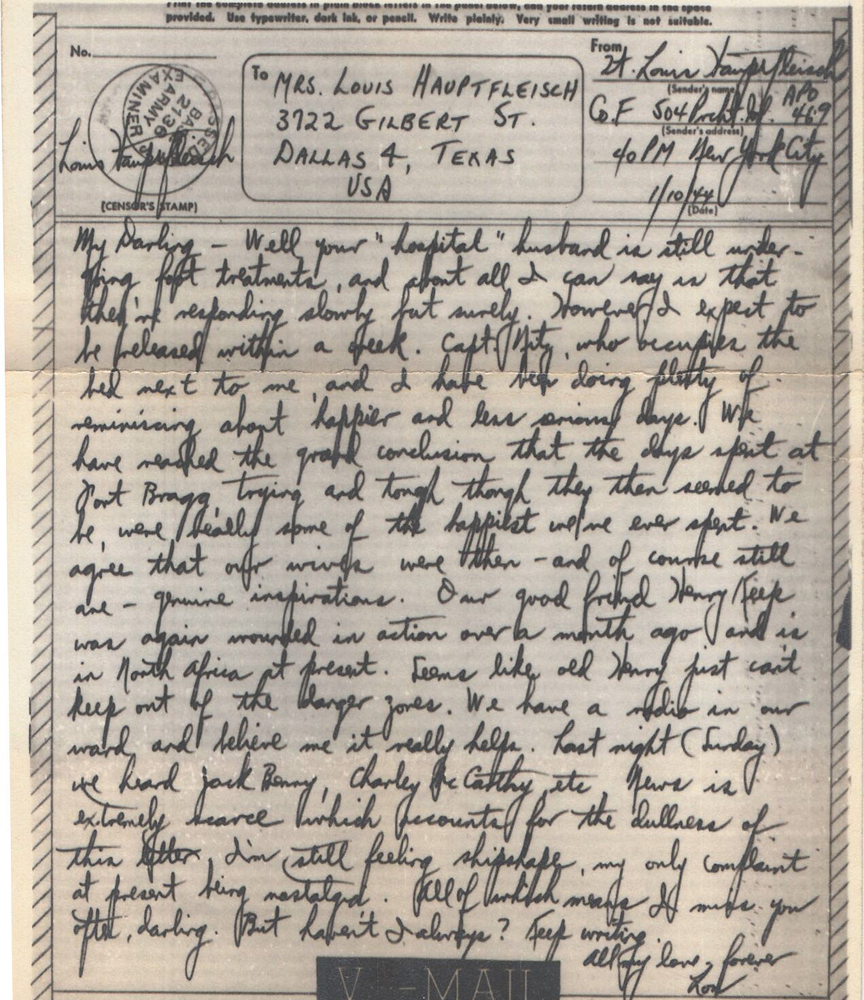 Print the complete address in plain block letters in the panel below, and your return address in the space
provided. Use typewriter, dark ink, or pencil. Write plainly. Very small writing is not suitable.
No.
PASSED BY
BASE
2136
ARMY
EXAMINER
Louis Hauptfleisch
(CENSOR'S STAMP)
To
MRS. LOUIS HAUPTFLEISCH
3722 GILBERT ST.
DALLAS 4, TEXAS
USA
From
Lt. Louis Hauptfleisch
(Sender's name)
Co. F 504 Prcht. Inf. APO 469
(Sender's address)
℅ PM New York City
1/10/44
(Date)
My Darling - Well your "hospital" husband is still under-
going foot treatments, and about all I can say is that
they're responding slowly but surely. However I expect to
be released within a week. Capt. Nitz, who occupies the
bed next to me, and I have been doing plenty of
reminiscing about happier and less serious days. We
have reached the grand conclusion that the days spent at
Fort Bragg, trying and tough though they then seemed to
be, were really some of the happiest we've ever spent. We
agree that our wives were then - and of course still
are - genuine inspirations. Our good friend Henry Keep
was again wounded in action over a month ago and is
in North Africa at present. Seems like old Henry just can't
keep out of the danger zones. We have a radio in our
ward, and believe me it really helps. Last night (Sunday)
we heard Jack Benny, Charley McCarthy, etc. News is
extremely scarce which accounts for the dullness of
this letter. I'm still feeling shipshape, my only complaint
at present being nostalgia. All of which means I miss you
often, darling. But haven't I always? Keep writing.
All my love, forever
Lou
V···—MAIL